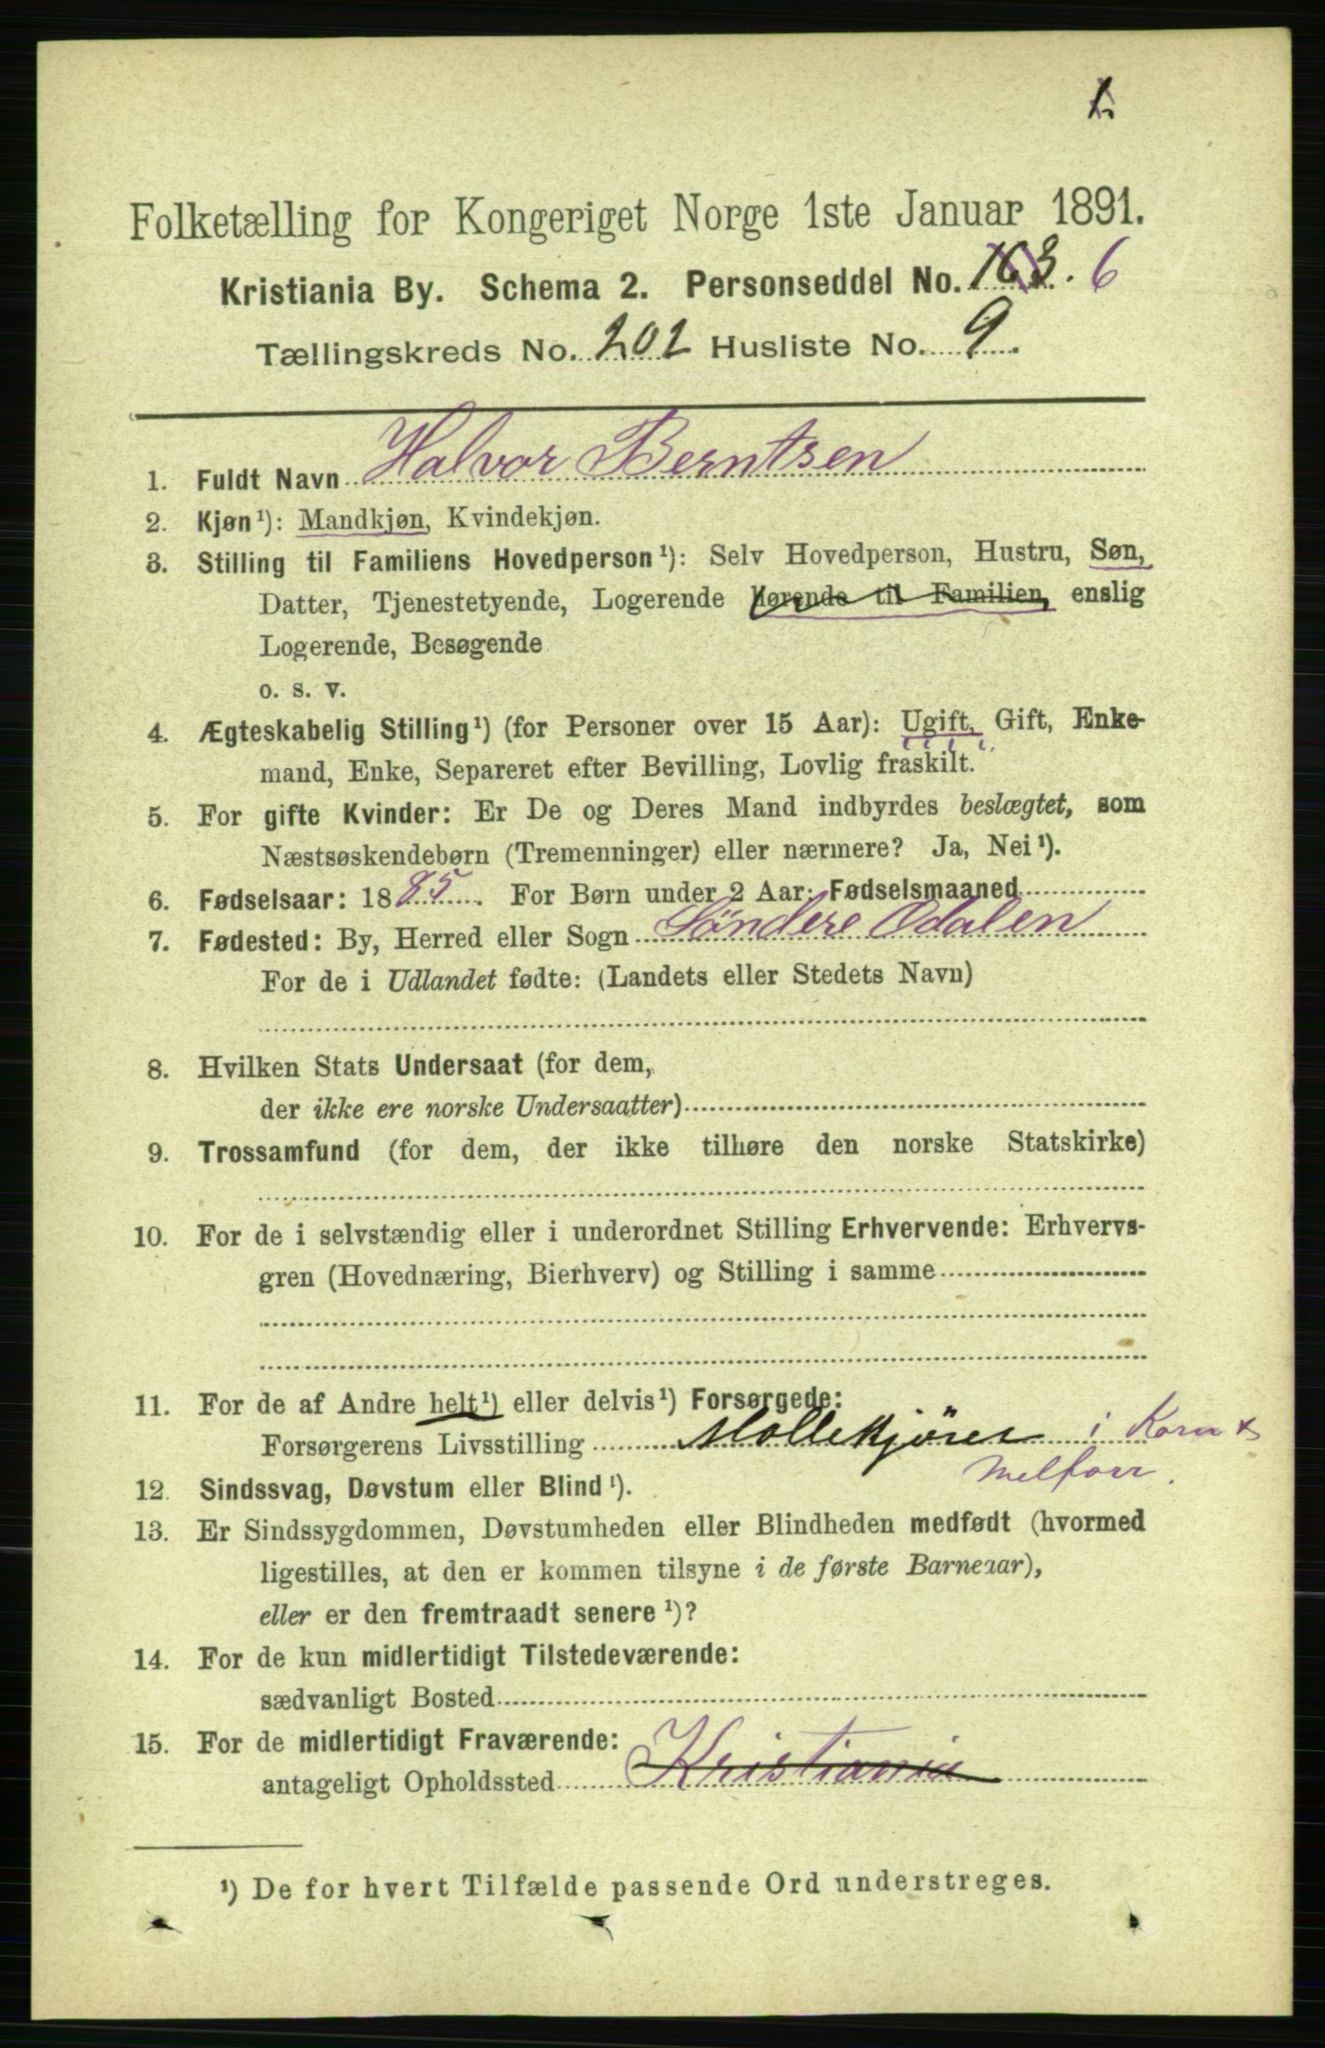 1.
Folketælling for Kongeriget Norge 1ste Januar 1891.
Kristiania By. Schema 2. Personseddel No. 163. 6
Tællingskreds No. 202 Husliste No. 9.
1. Fuldt Navn Halvor Berntsen
2. Kjøn¹): Mandkjøn, Kvindekjøn.
3. Stilling til Familiens Hovedperson¹): Selv Hovedperson, Hustru, Søn,
Datter, Tjenestetyende, Logerende hørende til Familien, enslig
Logerende, Besøgende
o. s. v.
4. Ægteskabelig Stilling¹) (for Personer over 15 Aar): Ugift, Gift, Enke-
mand, Enke, Separeret efter Bevilling, Lovlig fraskilt.
5. For gifte Kvinder: Er De og Deres Mand indbyrdes beslægtet, som
Næstsøskendebørn (Tremenninger) eller nærmere? Ja, Nei¹).
6. Fødselsaar: 1885. For Børn under 2 Aar: Fødselsmaaned
7. Fødested: By, Herred eller Sogn Søndere Odalen
For de i Udlandet fødte: (Landets eller Stedets Navn)
8. Hvilken Stats Undersaat (for dem,
der ikke ere norske Undersaatter)
9. Trossamfund (for dem, der ikke tilhøre den norske Statskirke)
10. For de i selvstændig eller i underordnet Stilling Erhvervende: Erhvervs-
gren (Hovednæring, Bierhverv) og Stilling i samme
11. For de af Andre helt¹) eller delvis¹) Forsørgede:
Forsørgerens Livsstilling Møllekjører i Korn &
Melforr.
12. Sindssvag, Døvstum eller Blind¹).
13. Er Sindssygdommen, Døvstumheden eller Blindheden medfødt (hvormed
ligestilles, at den er kommen tilsyne i de første Barneaar),
eller er den fremtraadt senere¹)?
14. For de kun midlertidigt Tilstedeværende:
sædvanligt Bosted
15. For de midlertidigt Fraværende:
antageligt Opholdssted Kristiania
¹) De for hvert Tilfælde passende Ord understreges.